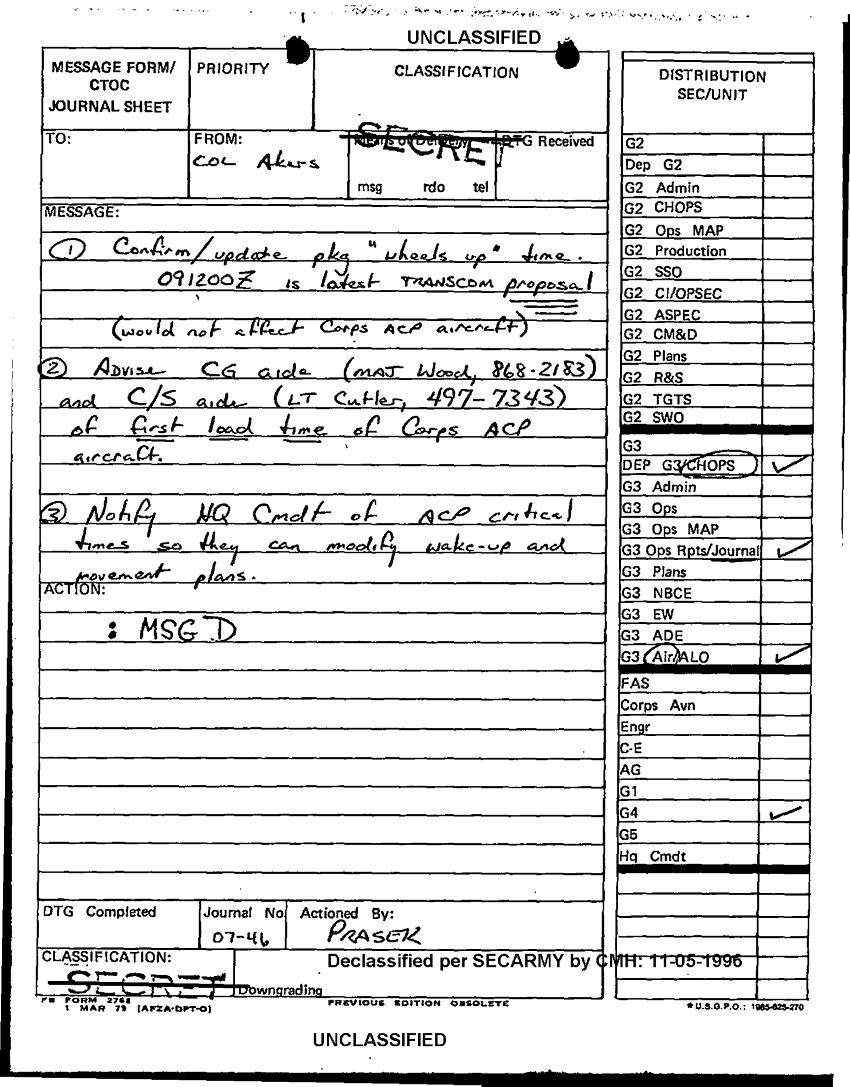 UNCLASSIFIED
MESSAGE FORM/
CTOC
JOURNAL SHEET
PRIORITY
CLASSIFICATION
SECRET
TO:
FROM:
COL Akers
Means of Delivery
msg rdo tel
DTG Received
MESSAGE:
① Confirm/update pkg "wheels up" time.
091200Z is latest TRANSCOM proposal
(would not affect Corps ACP aircraft)
② Advise CG aide (MAJ Wood, 868-2183)
and C/S aide (LT Cutler, 497-7343)
of first load time of Corps ACP
aircraft.
③ Notify HQ Cmdt of ACP critical
times so they can modify wake-up and
movement plans.
ACTION:
: MSG D
DTG Completed
Journal No
07-46
Actioned By:
PRASEK
CLASSIFICATION:
SECRET
Declassified per SECARMY by CMH: 11-05-1996
Downgrading
FB FORM 2768
1 MAR 79 (AFZA-DPT-O)
PREVIOUS EDITION OBSOLETE
DISTRIBUTION
SEC/UNIT
G2
Dep G2
G2 Admin
G2 CHOPS
G2 Ops MAP
G2 Production
G2 SSO
G2 CI/OPSEC
G2 ASPEC
G2 CM&D
G2 Plans
G2 R&S
G2 TGTS
G2 SWO
G3
DEP G3/CHOPS ✓
G3 Admin
G3 Ops
G3 Ops MAP
G3 Ops Rpts/Journal ✓
G3 Plans
G3 NBCE
G3 EW
G3 ADE
G3 Air/ALO ✓
FAS
Corps Avn
Engr
C-E
AG
G1
G4 ✓
G5
Hq Cmdt
★U.S.G.P.O.: 1985-625-270
UNCLASSIFIED